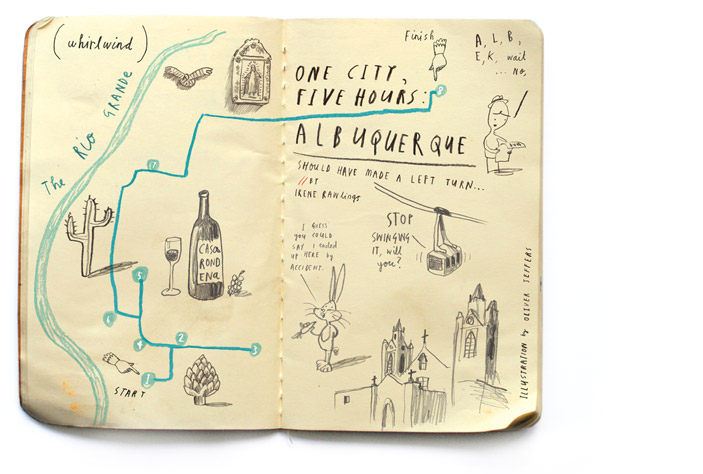 (whirlwind)
The Rio GRANDE
5
6
4
2
3
1
START
Finish
8
A, L, B,
E, K, wait
... No,
ONE CITY,
FIVE HOURS:
ALBUQUERQUE
SHOULD HAVE MADE A LEFT TURN...
// BY
IRENE RAWLINGS
I GUESS
YOU COULD
SAY I ENDED
UP HERE by
ACCIDENT.
STOP
SWINGING
IT, will
you?
CASA
ROND
ENA
ILLUSTRATION by OLIVER JEFFERS